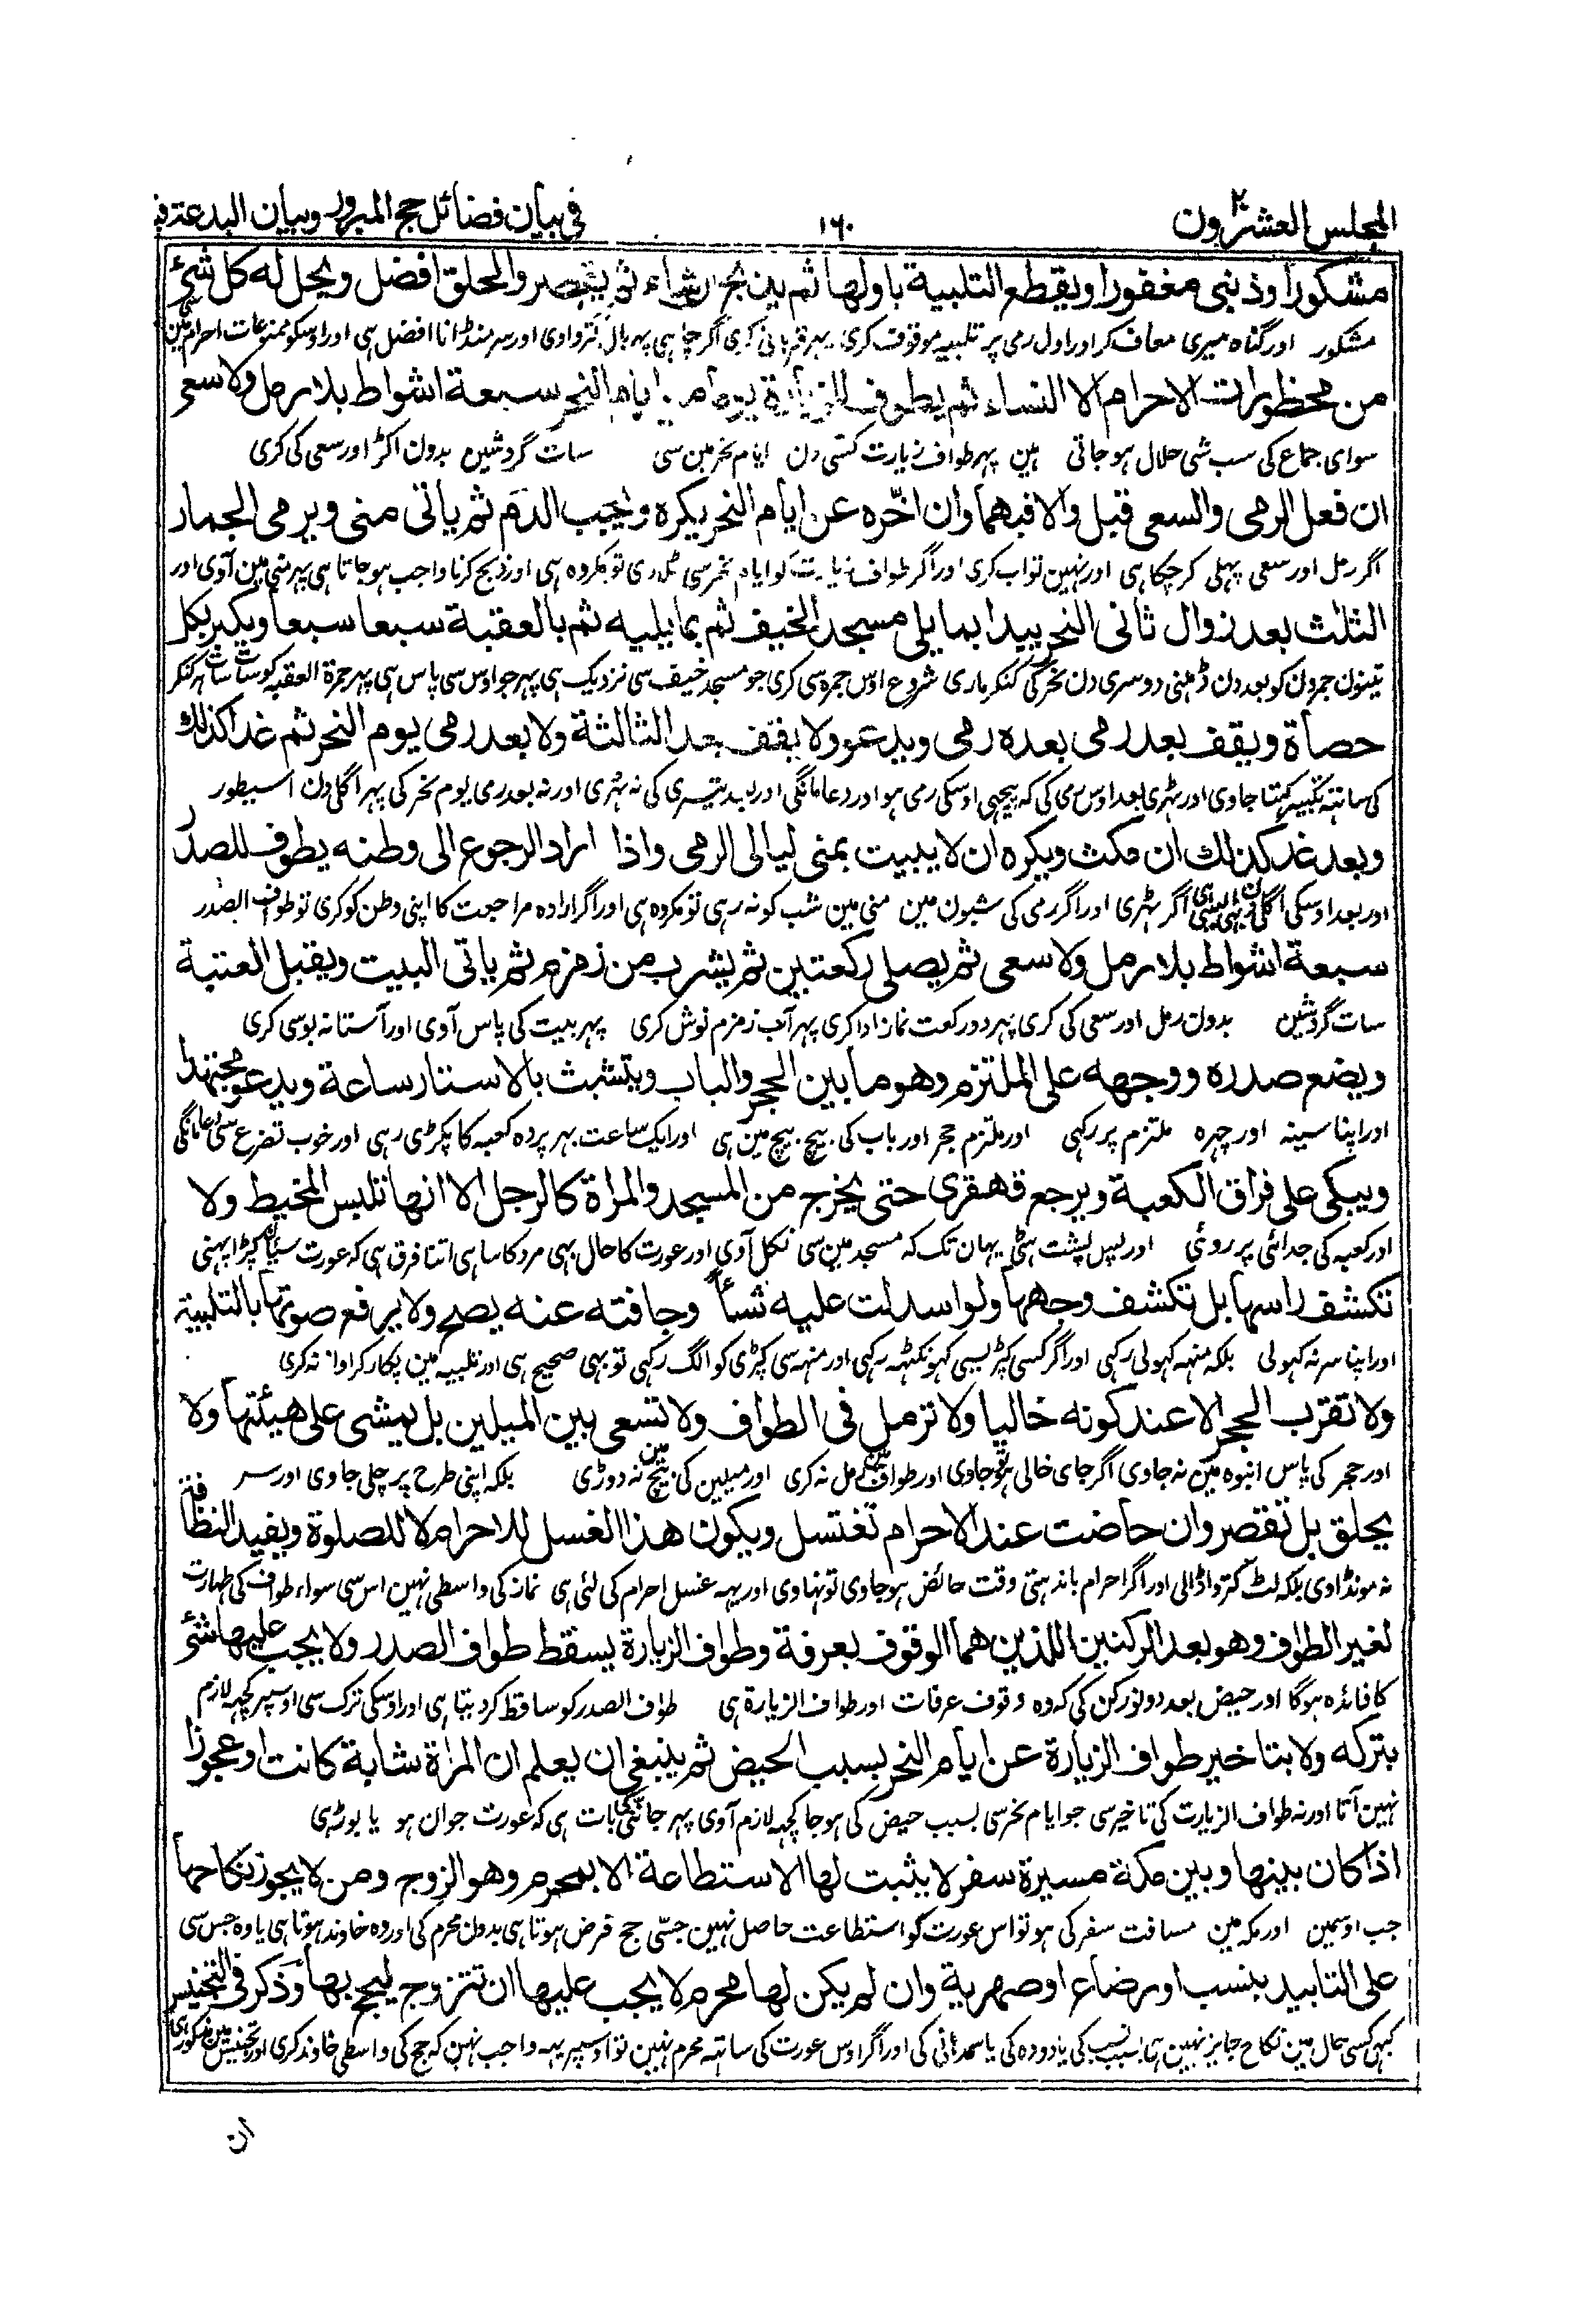 المجلس العشرون ٢٠
١٦٠
فی بیان فضائل حج المبرور وبیان البدعة فیه
مشکورا وذنبی مغفورا ویقطع التلبیة باولها ثم یذبح ان شاء ثم یقصر والحلق افضل ویحل له کل شئ
مشکور اور گناه میری معاف کر اور اول رمی پر تلبیه موقوف کری پهر قربانی کری اگر چاہی پهر بال کترواوی اور سر منڈانا افضل ہی اور اوسکو ممنوعات احرام مین سی
من محظورات الاحرام الا النساء ثم یطوف للزیارة یوما من ایام النحر سبعة اشواط بلا رمل ولا سعی
سوای جماع کی سب شی حلال ہو جاتی ہین پهر طواف زیارت کسی دن ایام نحر مین سی سات گردشین بدون اکڑ اور سعی کی کری
ان فعل الرمی والسعی قبل والا فبهما وان اخّره عن ایام النحر یکره ویجب الدم ثم یاتی منی ویرمی الجمار
اگر رمل اور سعی پہلی کر چکا ہی اور نہین تو اب کری اور اگر طواف زیارت کو ایام نحر سی ٹلاوی تو مکروه ہی اور ذبح کرنا واجب ہو جاتا ہی پهر منی مین آوی اور
الثلث بعد زوال ثانی النحر یبدا بما یلی مسجد الخیف ثم بما یلیه ثم بالعقبة سبعا سبعا ویکبر بکل
تینون جمرون کو بعد دن ڈهلنی دوسری دن نحر کی کنکر ماری شروع اوس جمره سی کری جو مسجد خیف سی نزدیک ہی پهر جو اوس سی پاس ہی پهر جمرة العقبه کو سات سات ہر کنکر
حصاة ویقف بعد رمی بعده رمی ویدعو ولا یقف بعد الثالثة ولا بعد رمی یوم النحر ثم غدا کذلك
کی ساتهہ تکبیر کہتا جاوی اور ٹہری بعد اوس رمی کی کہ پیچہی اوسکی رمی ہو اور دعا مانگی اور بعد تیسری کی نہ ٹہری اور نہ بعد رمی یوم نحر کی پهر اگلی دن اسیطور
وبعد غد کذلك ان مکث ویکره ان لا یبیت بمنی لیالی الرمی واذا اراد الرجوع الی وطنه یطوف للصدر
اور بعد اوسکی اگلی دن بہی ایسی ہی اگر ٹہری اور اگر رمی کی شبون مین منی مین شب کو نہ رہی تو مکروه ہی اور اگر اراده مراجعت کا اپنی وطن کو کری تو طواف الصدر
سبعة اشواط بلا رمل ولا سعی ثم یصلی رکعتین ثم یشرب من زمزم ثم یاتی البیت ویقبل العتبة
سات گردشین بدون رمل اور سعی کی کری پهر دو رکعت نماز ادا کری پهر آب زمزم نوش کری پهر بیت کی پاس آوی اور آستانہ بوسی کری
ویضع صدره ووجهه علی الملتزم وهو ما بین الحجر والباب ویتشبث بالاستار ساعة ویدعو مجتهدا
اور اپنا سینہ اور چہره ملتزم پر رکہی اور ملتزم حجر اور باب کی بیچ بیچ مین ہی اور ایک ساعت بہر پرده کعبہ کا پکڑی رہی اور خوب تضرع سی دعا مانگی
ویبکی علی فراق الکعبة ویرجع قهقری حتی یخرج من المسجد والمراة کالرجل الا انها تلبس المخیط ولا
اور کعبہ کی جدائی پر روئی اور پس پشت ہٹی یہان تک کہ مسجد مین سی نکل آوی اور عورت کا حال بہی مرد کا سا ہی اتنا فرق ہی کہ عورت سیا ہوا کپڑا پہنی
تکشف راسها بل تکشف وجهها ولو اسدلت علیه شیأ وجافته عنه یصح ولا یرفع صوتها بالتلبیة
اور اپنا سر نہ کہولی بلکہ منہہ کہولی رکہی اور اگر کسی کپڑیسی گہونگٹہہ رکہی اور منہہ سی کپڑی کو الگ رکہی تو بہی صحیح ہی اور تلبیہ مین پکار کر اواز نہ کری
ولا تقرب الحجر الا عند کونه خالیا ولا ترمل فی الطواف ولا تسعی بین المیلین بل یمشی علی هیئتها ولا
اور حجر کی پاس انبوه مین نہ جاوی اگر جای خالی ہو تو جاوی اور طواف مین رمل نہ کری اور میلین کی بیچ مین نہ دوڑی بلکہ اپنی طرح پر چلی جاوی اور سر
یحلق بل تقصر وان حاضت عند الاحرام تغتسل ویکون هذا الغسل للاحرام لا للصلوة ویفید النظافة
نہ مونڈاوی بلکہ لٹ کترواڈالی اور اگر احرام باندہتی وقت حائض ہو جاوی تو نہاوی اور یہہ غسل احرام کی لئی ہی نماز کی واسطی نہین اس سی سواء طواف کی طہارت
لغیر الطواف وهو بعد الرکنین اللذین هما الوقوف بعرفة وطواف الزیارة یسقط طواف الصدر ولا یجب علیها شئ
کا فائده ہوگا اور حیض بعد دونو رکن کی کہ وه وقوف عرفات اور طواف الزیارة ہی طواف الصدر کو ساقط کر دیتا ہی اور اوسکی ترک سی اوسپر کچہہ لازم
بترکه ولا بتاخیر طواف الزیارة عن ایام النحر بسبب الحیض ثم ینبغی ان یعلم ان المراة شابة کانت او عجوزا
نہین آتا اور نہ طواف الزیارت کی تاخیر سی جو ایام نحر سی بسبب حیض کی ہو جا کچہہ لازم آوی پهر جاننی کی بات ہی کہ عورت جوان ہو یا بوڑہی
اذا کان بینها وبین مکة مسیرة سفر لا یثبت لها الاستطاعة الا بمحرم وهو الزوج ومن لا یجوز نکاحها
جب اوسمین اور مکہ مین مسافت سفر کی ہو تو اس عورت کو استطاعت حاصل نہین جسّی حج فرض ہوتا ہی بدون محرم کی اور وه خاوند ہوتا ہی یا وه جس سی
علی التابید بنسب او رضاع او صهریة وان لم یکن لها محرم لا یجب علیها ان تتزوج لیحج بها وذکر فی التجنیس
کبہی کسی حال مین نکاح جایز نہین بسبب نسب کی یا دوده کی یا سمدہانی کی اور اگر اوس عورت کی ساتہہ محرم نہین تو اوسپر یہہ واجب نہین کہ حج کی واسطی خاوند کری اور تجنیس مین مذکور ہی
ان